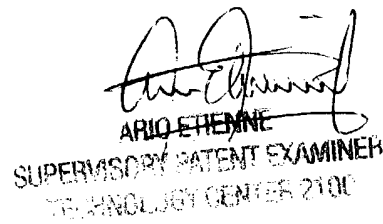 ARIO ETIENNE
SUPERVISORY PATENT EXAMINER
TECHNOLOGY CENTER 2100